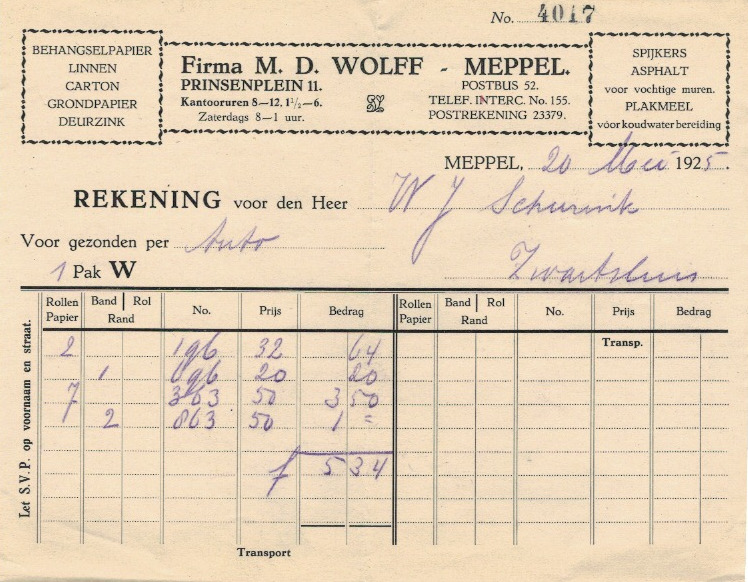 No. 4017
BEHANGSELPAPIER
LINNEN
CARTON
GRONDPAPIER
DEURZINK
Firma M. D. WOLFF - MEPPEL.
PRINSENPLEIN 11.
Kantooruren 8—12, 1½—6.
Zaterdags 8—1 uur.
POSTBUS 52.
TELEF. INTERC. No. 155.
POSTREKENING 23379.
SPIJKERS
ASPHALT
voor vochtige muren.
PLAKMEEL
vóor koudwaterbereiding
MEPPEL, 20 Mei 1925.
REKENING voor den Heer W J Schurink
Voor gezonden per Auto
Zwartsluis
1 Pak W
Let S.V.P. op voornaam en straat.
Rollen Papier Band Rol Rand No. Prijs Bedrag Rollen Papier Band Rol Rand No. Prijs Bedrag
Transp.
2 196 32 64
1 696 20 20
7 363 50 3 50
2 863 50 1 =
f 5 34
Transport